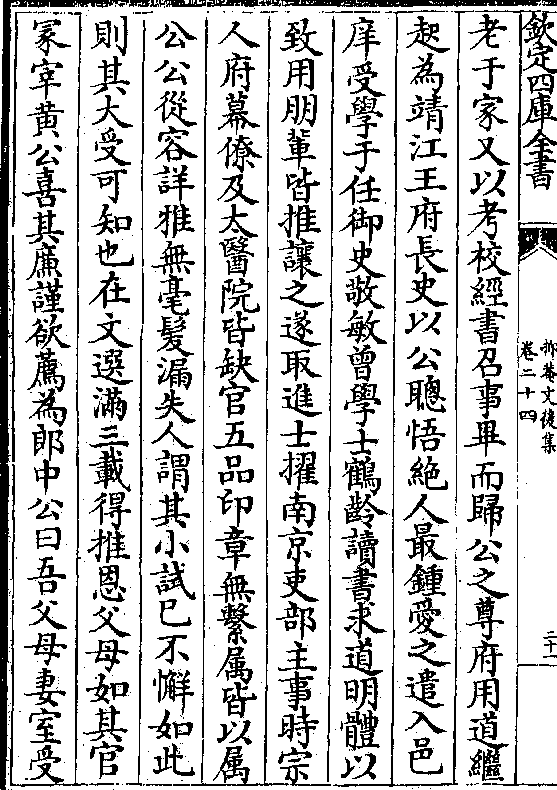 欽定四庫全書
抑菴文後集
卷二十四
二十一
老于家又以考校經書召事畢而歸公之尊府用道繼
起為靖江王府長史以公聰悟絶人最鍾愛之遣入邑
庠受學于任御史敬敏曾學士鶴齡讀書求道明體以
致用朋輩皆推讓之遂取進士擢南京吏部主事時宗
人府幕僚及太醫院皆缺官五品印章無繫属皆以属
公公從容詳雅無毫髮漏失人謂其小試已不懈如此
則其大受可知也在文選滿三載得推恩父母如其官
冢宰黄公喜其廉謹欲薦為郎中公曰吾父母妻室受